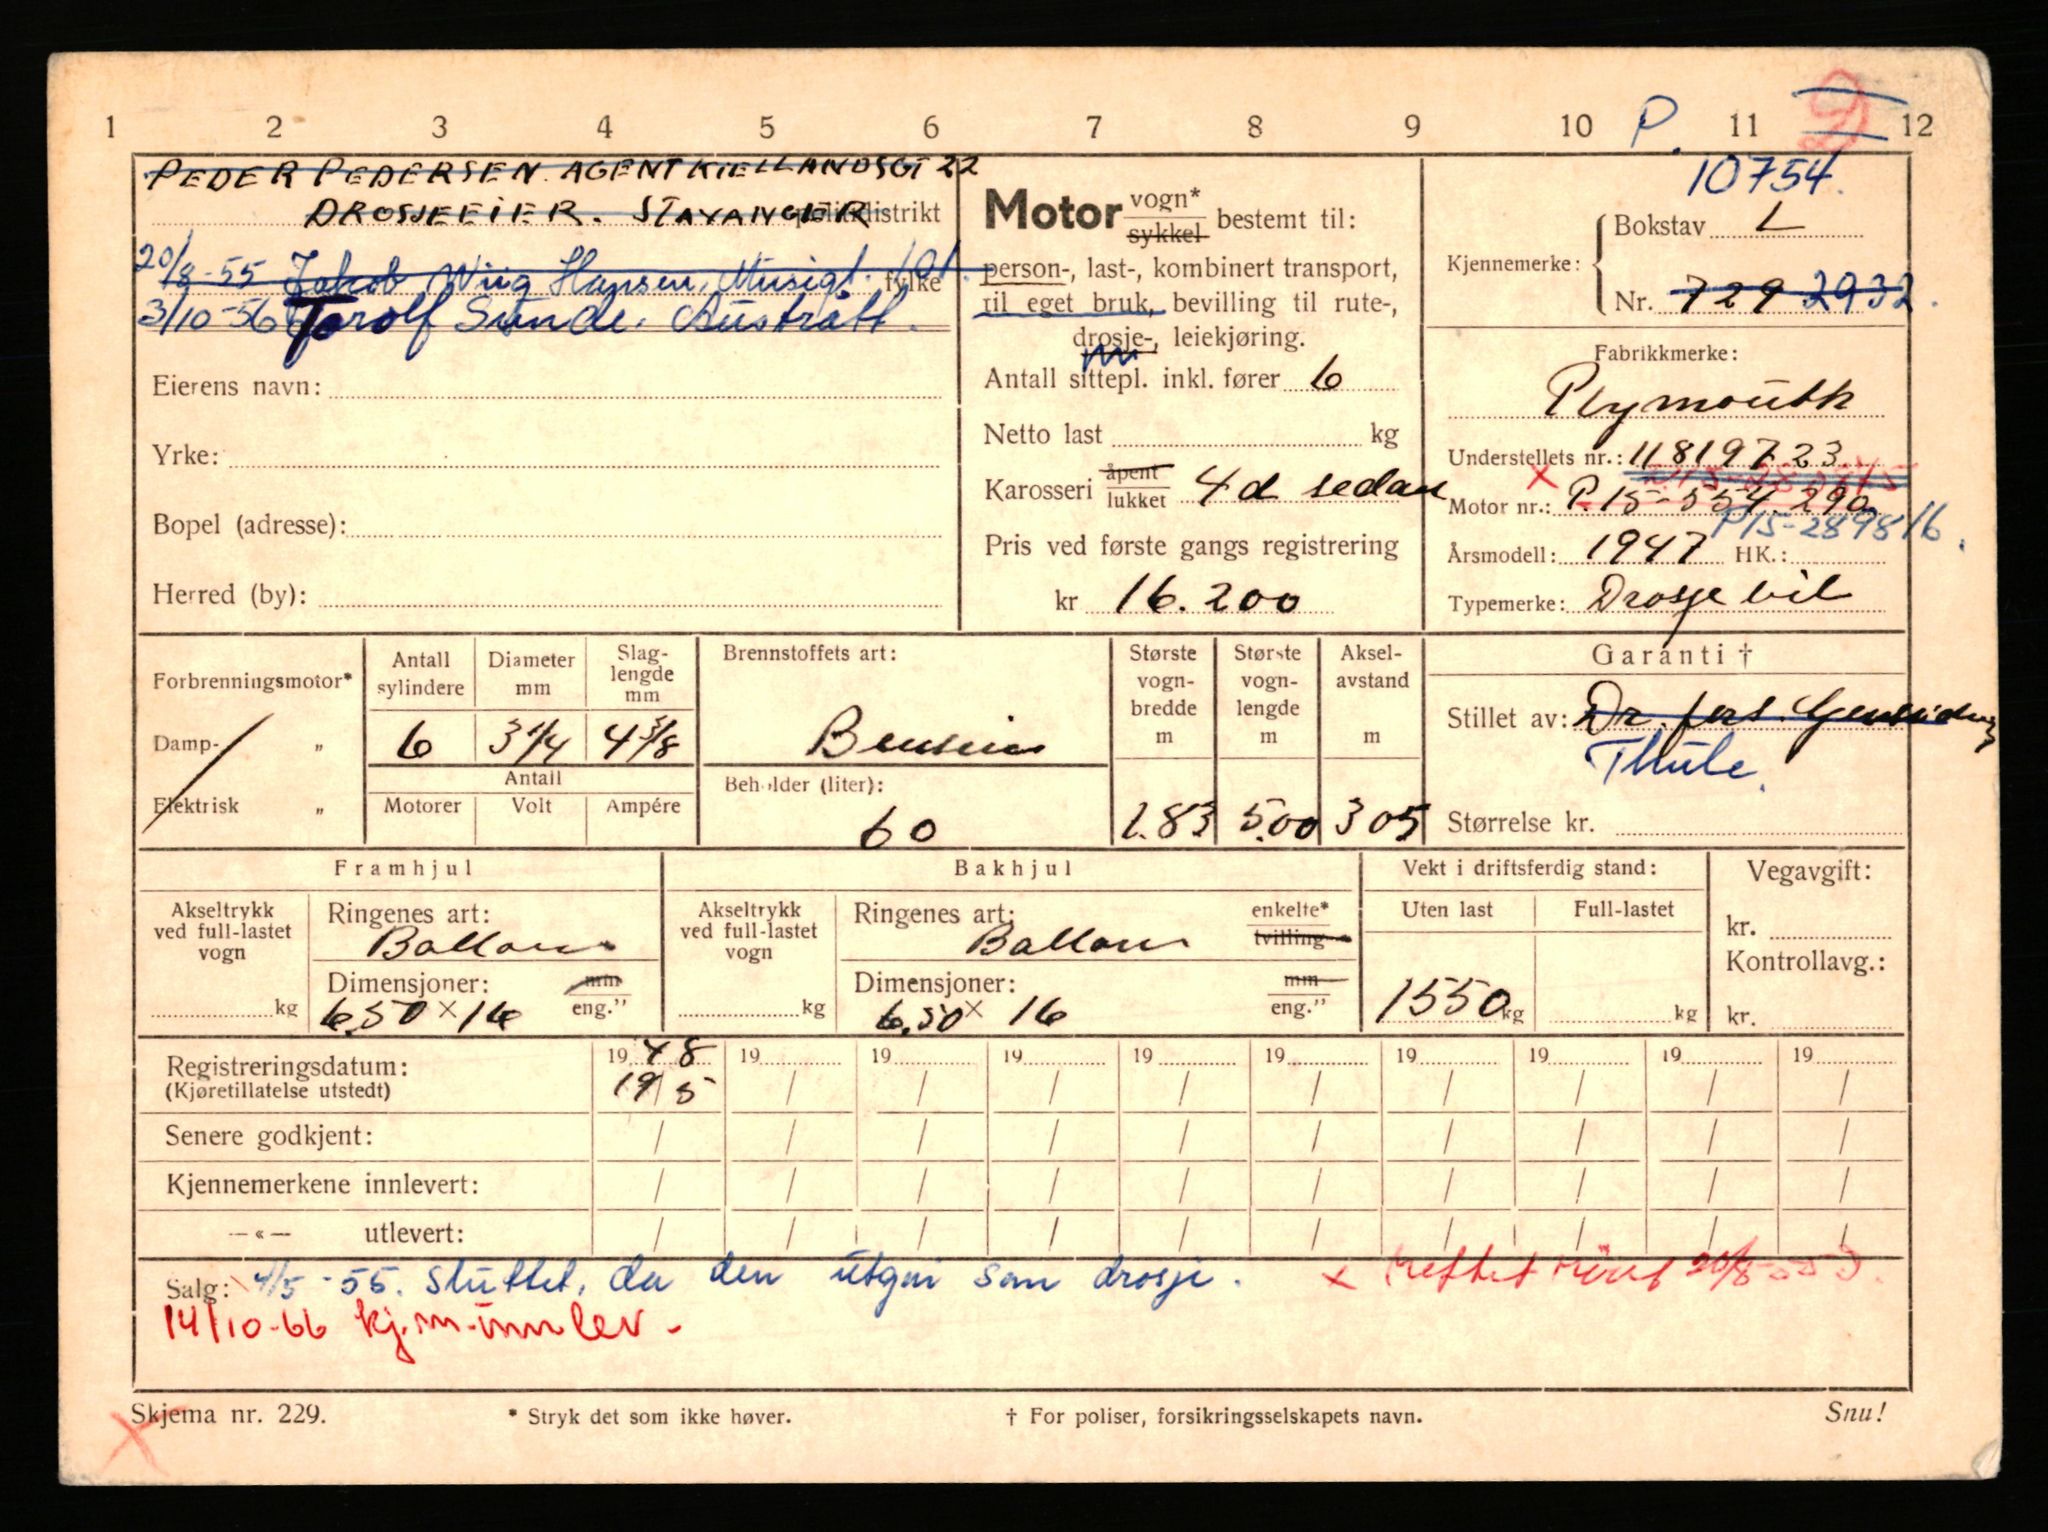 1 2 3 4 5 6 7 8 9 10 P. 11 12
10754.
PEDER PEDERSEN. AGENT KIELLANDSGT 22
DROSJEEIER. STAVANGER politidistrikt
20/8-55 Jakob Wiig Hansen, Musègt. 101. fylke
3/10-56 Torolf Sunde. Austrått.
Eierens navn:
Yrke:
Bopel (adresse):
Herred (by):
Motor vogn* sykkel bestemt til:
person-, last-, kombinert transport,
til eget bruk, bevilling til rute-,
drosje-, leiekjøring.
Antall sittepl. inkl. fører 6
Netto last kg
Karosseri åpent lukket 4d sedan
Pris ved første gangs registrering
kr 16.200
Kjennemerke: Bokstav L
Nr. 729 2932.
Fabrikkmerke:
Plymouth
Understellets nr.: 11819723
x Motor nr.: P.15-554.290
P15-289816.
Årsmodell: 1947 HK.:
Typemerke: Drosjebil
Forbrenningsmotor*
Damp- „
Elektrisk „
Antall sylindere
Diameter mm
Slaglengde mm
6 3 1/4 4 3/8
Antall
Motorer Volt Ampére
Brennstoffets art:
Bensin
Beholder (liter):
60
Største vognbredde m
Største vognlengde m
Akselavstand m
1.83 5.00 305
Garanti †
Stillet av: Dr.
Thule.
Størrelse kr.
Framhjul
Akseltrykk ved full-lastet vogn
kg
Ringenes art:
Ballon
Dimensjoner: mm eng."
6.50 x 16
Bakhjul
Akseltrykk ved full-lastet vogn
kg
Ringenes art: enkelte* tvilling
Ballon
Dimensjoner: mm eng."
6.50 x 16
Vekt i driftsferdig stand:
Uten last Full-lastet
1550 kg kg
Vegavgift:
kr.
Kontrollavg.:
kr.
Registreringsdatum: 19 48 19 19 19 19 19 19 19 19 19
(Kjøretillatelse utstedt) 19/5 / / / / / / / / /
Senere godkjent: / / / / / / / / / /
Kjennemerkene innlevert: / / / / / / / / / /
—«— utlevert: / / / / / / / / / /
Salg: 4/5-55. sluttet, da den utgår som drosje. x 20/8-55
14/10-66 kj.m. innlev.
Skjema nr. 229.
* Stryk det som ikke høver.
† For poliser, forsikringsselskapets navn.
Snu!